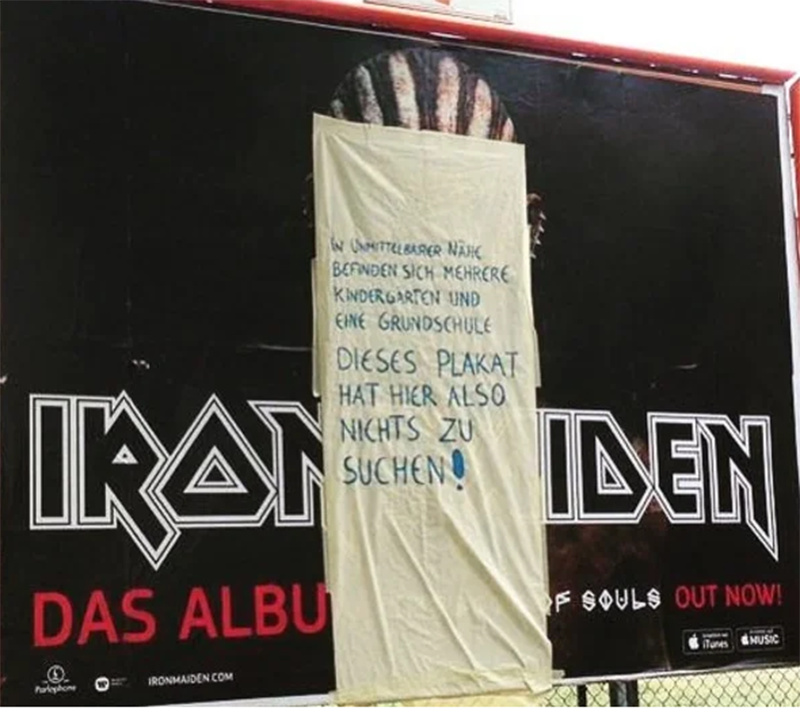 IN UNMITTELBARER NÄHE
BEFINDEN SICH MEHRERE
KINDERGÄRTEN UND
EINE GRUNDSCHULE
DIESES PLAKAT
HAT HIER ALSO
NICHTS ZU
SUCHEN!
IRON IDEN
DAS ALBU OF SOULS OUT NOW!
Parlophone IRONMAIDEN.COM iTunes MUSIC